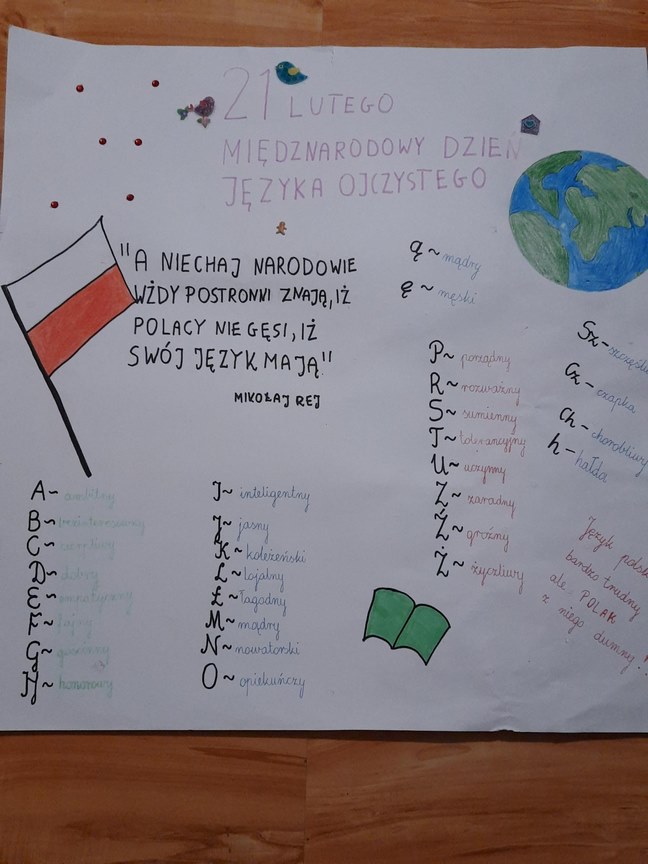 21 LUTEGO
MIĘDZNARODOWY DZIEŃ
JĘZYKA OJCZYSTEGO
"A NIECHAJ NARODOWIE
WŻDY POSTRONNI ZNAJĄ, IŻ
POLACY NIE GĘSI, IŻ
SWÓJ JĘZYK MAJĄ"
MIKOŁAJ REJ
ą ~ mądry
ę ~ męski
P ~ porządny
R ~ rozważny
S ~ sumienny
T ~ tolerancyjny
U ~ uczynny
Z ~ zaradny
Ź ~ groźny
Ż ~ życzliwy
Sz -
Cz - czapka
Ch - chorobliwy
h - hałda
A ~ ambitny
B ~
C ~
D ~ dobry
E ~
F ~ fajny
G ~
H ~ honorowy
I ~ inteligentny
J ~ jasny
K ~ koleżeński
L ~ lojalny
Ł ~ łagodny
M ~ mądry
N ~ nowatorski
O ~ opiekuńczy
Język
bardzo trudny
ale POLAK
z niego dumny!